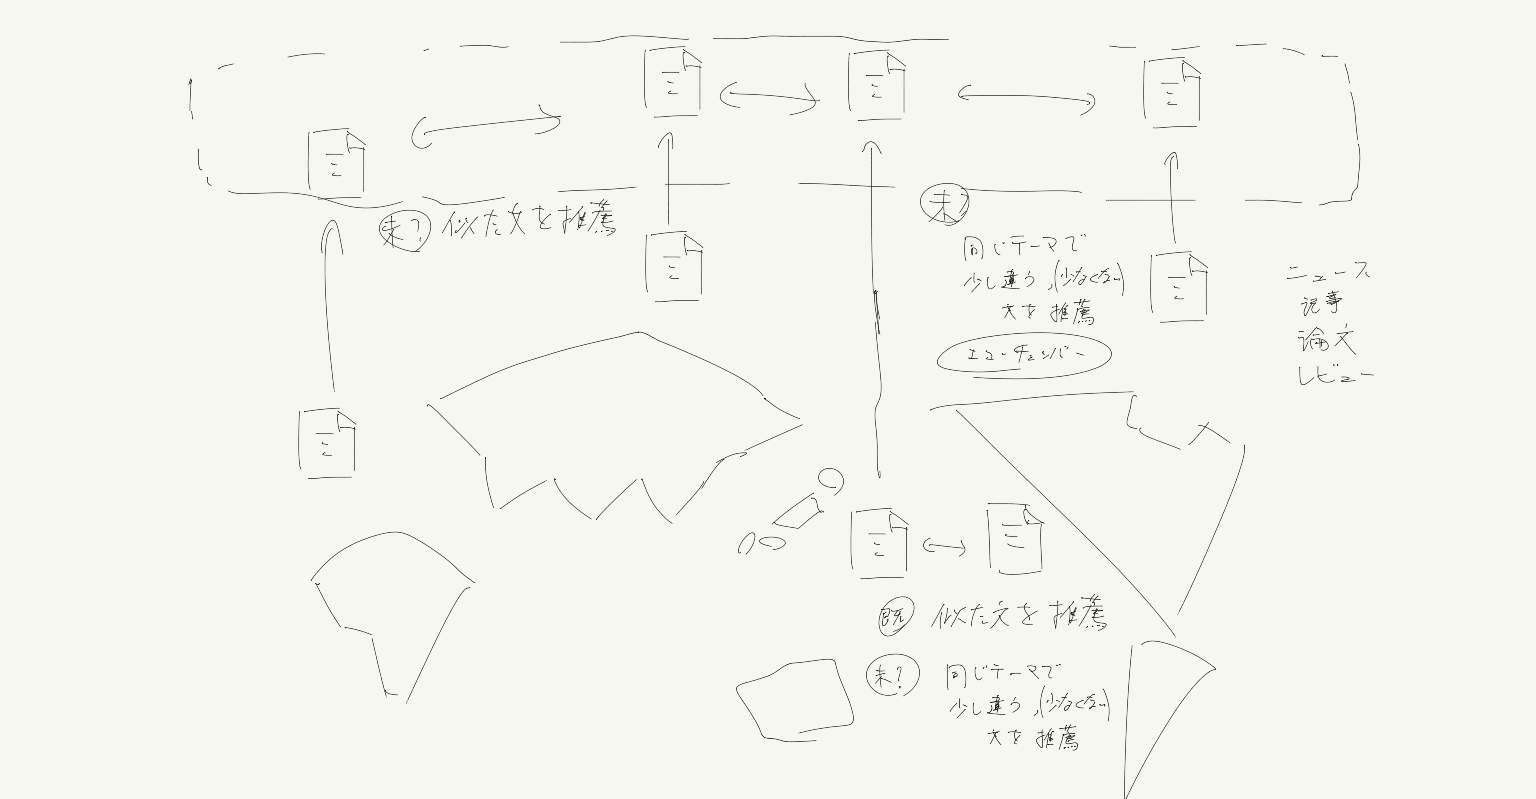 未? 似た文を推薦
未?
同じテーマで
少し違う,(少なくない)
文を推薦
エコーチェンバー
ニュース
記事
論文
レビュー
既 似た文を推薦
未? 同じテーマで
少し違う,(少なくない)
文を推薦